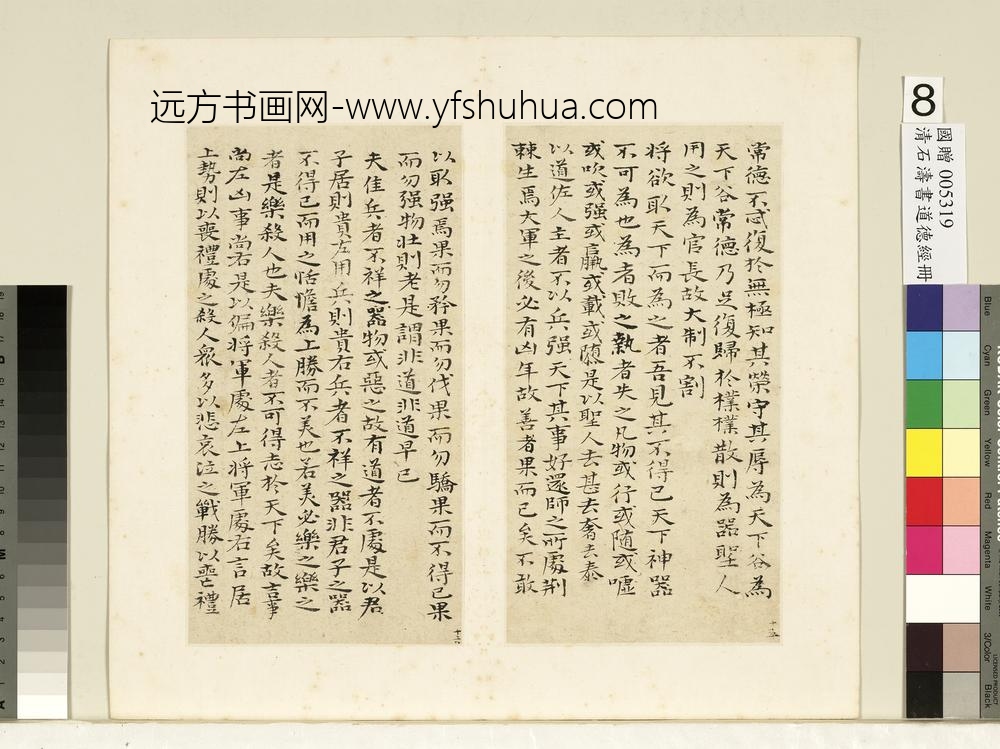 远方书画网-www.yfshuhua.com
8
國贈 005319
清石濤書道德經冊
常德不忒復於無極知其榮守其辱為天下谷為
天下谷常德乃足復歸於樸樸散則為器聖人
用之則為官長故大制不割
將欲取天下而為之者吾見其不得已天下神器
不可為也為者敗之執者失之凡物或行或隨或噓
或吹或强或羸或載或隳是以聖人去甚去奢去泰
以道佐人主者不以兵强天下其事好還師之所處荆
棘生焉大軍之後必有凶年故善者果而已矣不敢
十五
以取强焉果而勿矜果而勿伐果而勿驕果而不得已果
而勿强物壯則老是謂非道非道早已
夫佳兵者不祥之器物或惡之故有道者不處是以君
子居則貴左用兵則貴右兵者不祥之器非君子之器
不得已而用之恬憺為上勝而不美也若美必樂之樂之
者是樂殺人也夫樂殺人者不可得志於天下矣故吉事
尚左凶事尚右是以偏將軍處左上將軍處右言居
上勢則以喪禮處之殺人衆多以悲哀泣之戰勝以喪禮
十六
Blue
Cyan
Green
Yellow
Red
Magenta
White
3/Color
Black